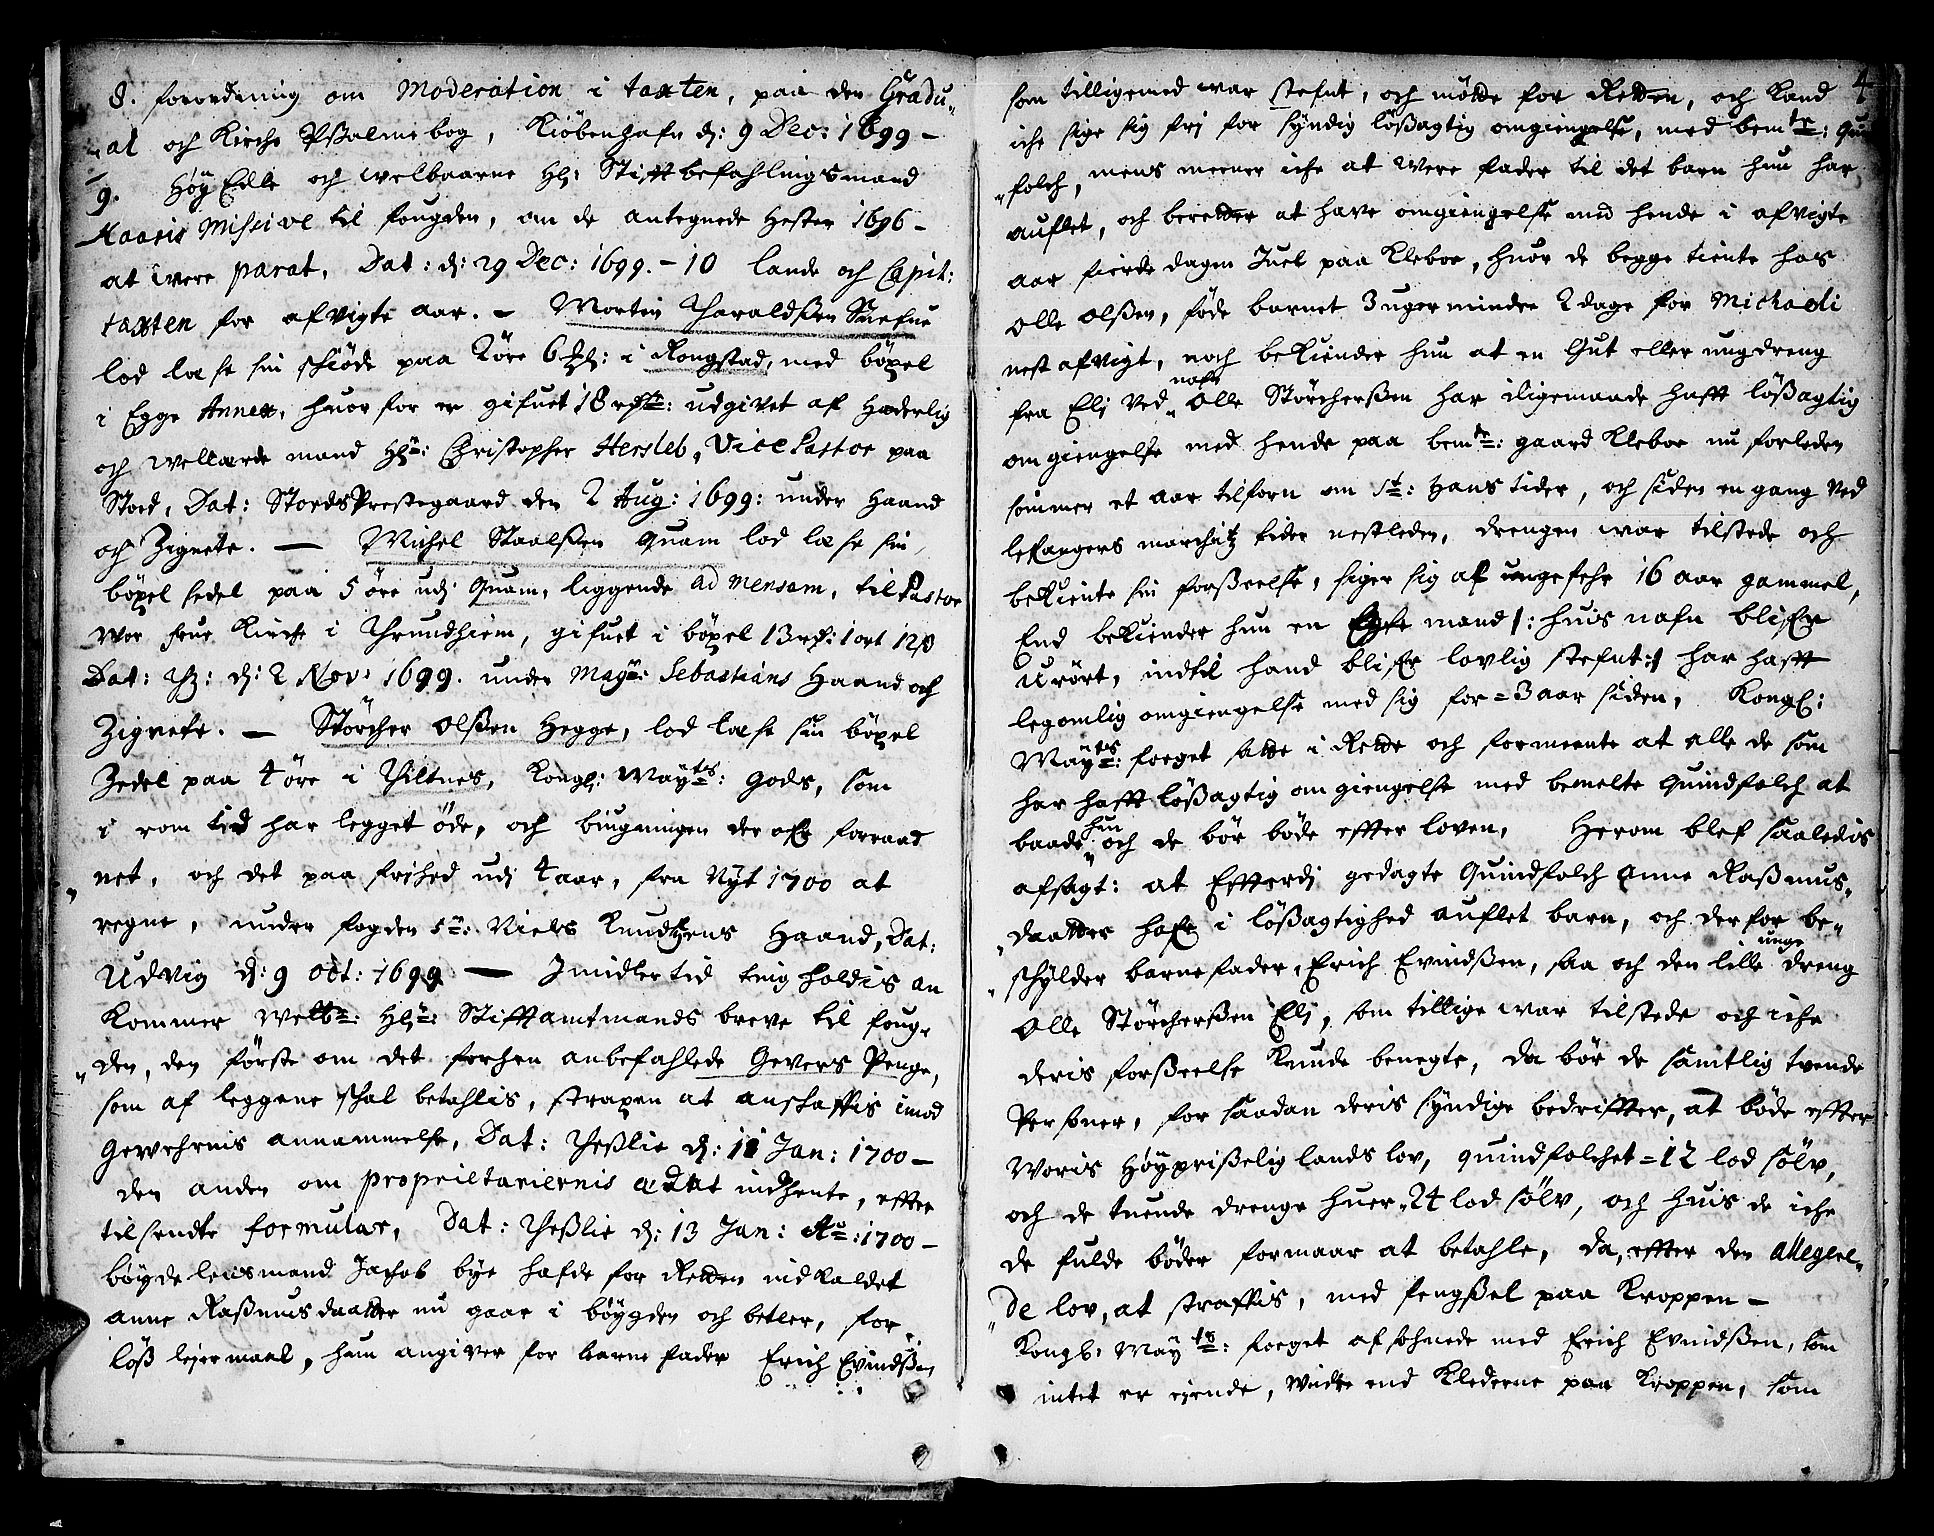 8. forordning om Moderation i taxten, paa den Gradu-
al och Kirche Psalmebog, Kiöbenhafn d: 9 Dec: 1699 -
9. Höy Edle och welbaarne Hl: Stifftbefahlingsmand
Kaaris Missive til fougden, om de antegnede Hester 1696 -
at were parat, Dat: d: 29 Dec: 1699. - 10 lande och Capit:
taxten for afvigte aar. - Morten Haraldßen Snefue
lod læse sin schiöde paa 2öre 6 i Rongstad, med böxel
i Egge Annex, huor for er gifuet 18 rdlr: udgivet af Hæderlig
och Wellærde mand Hr: Christopher Hersleb, Vice Pastor paa
Stod, Dat: Stords Prestegaard den 2 Aug: 1699: under Haand
och Zignete. — Michel Staalßen Quam lod læse sin
böxel sedel paa 5 öre udj Quam, liggende ad mensam, til Pastor
wor frue Kirche i Thrundhiem, gifuet i böxel 13 rd: 1 ort 12 ß
Dat: Th: d: 2 Nov: 1699. under Magr: Sebastians Haand och
Zignete. — Störcher Olßen Hegge, lod læse sin böxel
Zedel paa 4 öre i Thiltnes, Kongl: Mayts: gods, som
i rom tid har legget öde, och biugningen der ofr forraad
net, och det paa frihed udj 4 aar, fra Nyt 1700 at
regne, under fogden Sr: Niels Knudtzens Haand, Dat:
Udvig d: 9 Oct: 1699 — Imidlertid ting holdis an
kommer Welb: Hr: Stifftamtmands breve til foug-
den, den förste om det forhen anbefahlede Gevers Penge,
som af leggene schal betahlis, strapen at anskaffis imod
Gewehrnis annammelse, Dat: Theßlie d: 11 Jan: 1700 -
den anden om proprietariernis at indhente, effter
tilsendte formular, Dat: Theßlie d: 13 Jan: Ao: 1700 -
böygde lensmand Jachob bye hafde for Retten indkaldet
anne Raßmusdaatter nu gaar i böygden och betler, for
löß lejermaal, hun angiver for barne fader Erich Evindßen,
4
som tilligemed war stefnt, och mötte for Retten, och Kand
iche sige sig fri for syndig lößagtig omgiengelse, med bemte: Qu
folch, mens meener iche at were fader til det barn hun har
auflet, och beretter at have omgiengelse med hende i afvigte
aar fierde dagen Juel paa Kleboe, huor de begge tiente hos
Olle Olßen, föde barnet 3 uger mindre 2 dage for Michaeli
nest afvigt, noch bekiender hun at en Gut eller ungdreng
fra Elj ved nafn Olle Störcherßen har iligemaade hafft lößagtig
omgiengelse med hende paa bemte: gaard Kleboe nu forleden
sommer et aar tilforn om St: Hans tider, och siden en gang ved
lefangers marchitz tider nestleden, drengen war tilstede och
bekiente sin forßeelse, siger sig af ungefehr 16 aar gammel,
End bekiender hun en Egte mand /: huis nafn blifer
Urört, indtil hand blifer lovlig stefnt:/ har hafft
legomlig omgiengelse med sig for = 3 aar siden, Kongl:
Mayts: foeget satte i Rette och formeente at alle de som
har hafft lößagtig omgiengelse med bemelte Quindfolch at
baade hun och de bör böde effter loven, Herom blef saaledis
afsagt: at Effterdj gedagte Quindfolch Anne Raßmus-
daatter hafr i lößagtighed auflet barn, och derfor be-
schylder barnefader, Erich Evindßen, saa och den lille unge dreng
Olle Störcherßen Elj, som tillige war tilstede och iche
deris forßeelse kunde benegte, da bör de samtlig tvende
Persaner, for saadan deris syndige bedriffter, at böde effter
Woris Höyprißelig lands lov, quindfolchet = 12 lod sölv,
och de tuende drenge huer 24 lod sölv, och huis de iche
de fulde böder formaar at betahle, da, effter den allegeel-
de lov, at straffis, med fengßel paa Kroppen -
Kongl: Mayts: foeget afsohnede med Erich Evindßen, som
intet er ejende, widre end Klederne paa Kroppen, som